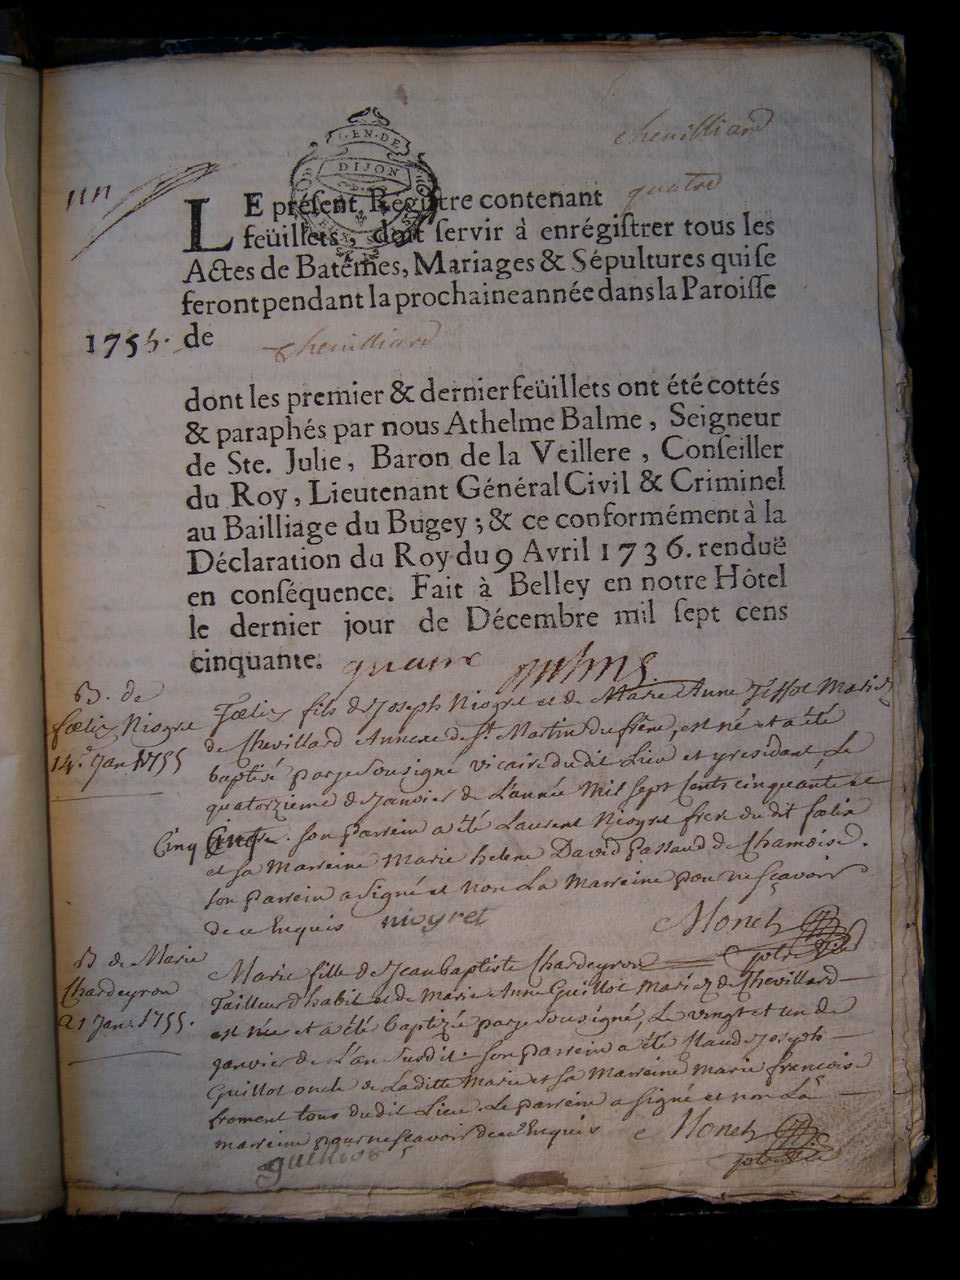 chevilliard
GEN. DE
DIJON
un
LE présent Registre contenant quatre
feüillets, doit servir à enrégistrer tous les
Actes de Batêmes, Mariages & Sépultures qui se
feront pendant la prochaine année dans la Paroisse
1755. de chevilliard
dont les premier & dernier feüillets ont été cottés
& paraphés par nous Athelme Balme, Seigneur
de Ste. Julie, Baron de la Veillere, Conseiller
du Roy, Lieutenant Général Civil & Criminel
au Bailliage du Bugey; & ce conformément à la
Déclaration du Roy du 9 Avril 1736. renduë
en conséquence. Fait à Belley en notre Hôtel
le dernier jour de Décembre mil sept cens
cinquante. quatre
B. de
fœlix Niogret
14e Jan 1755
Fœlix fils de Joseph Niogret et de Marie Anne Jeffot Mariez
de Chevillard Annexe de St. Martin du frêne, est né et a été
baptisé par je sousigné vicaire du dit Lieu et y residant Le
quatorzieme de Janvier de L'année Mil sept Cents cinquante et
Cinq. son parrein a été Laurent Niogret frere du dit fœlix
et sa Marreine Marie helene David Passaud de Chamoise.
son parrein a signé et non La Marreine pour ne sçavoir
de ce Enquis niogret Monet
ptre Vic
B de Marie
Chardeyron
21 Jan. 1755.
Marie fille de Jean baptiste Chardeyron
Tailleur d'habit et de Marie Anne Guillot Mariez de Chevillard
est née et a été baptizée par je sousigné, Le vingt et un de
janvier de L'an susdit. son parrein a été Claude Joseph
Guillot oncle de Laditte Marie et sa Marreine Marie francoise
froment tous du dit Lieu. Le parrein a signé et non La
marreine pour ne scavoir de ce Enquis Monet
guillot ptre Vic